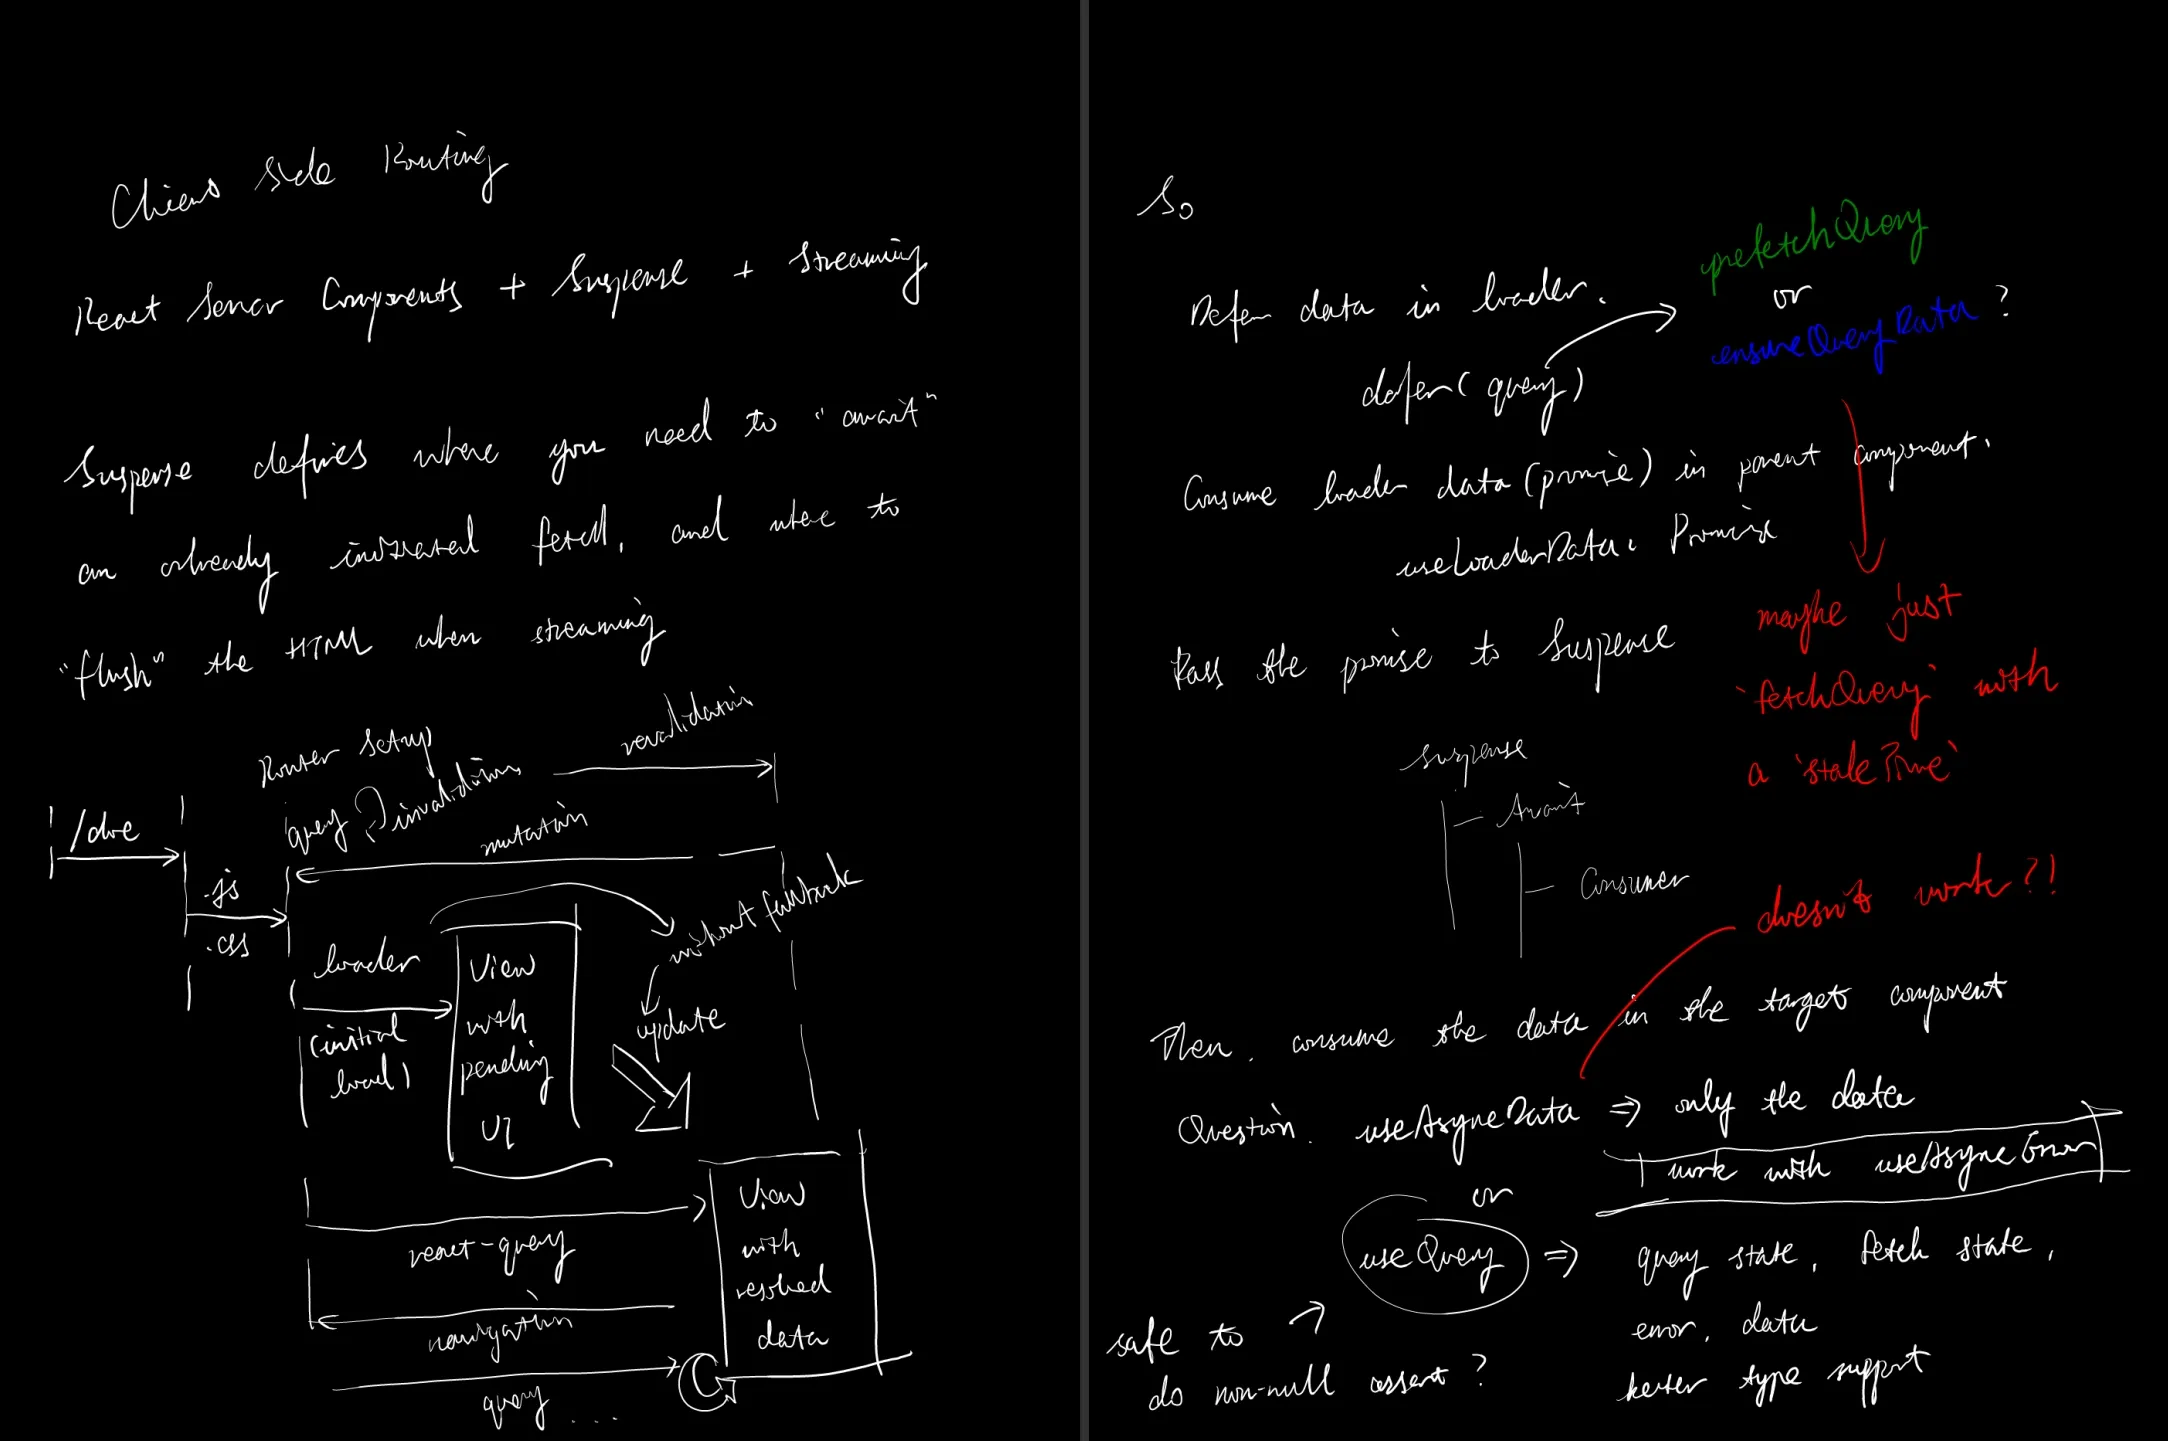 Client Side Routing
React Server Components + Suspense + Streaming
Suspense defines where you need to "await"
an already initiated fetch, and where to
"flush" the HTML when streaming
Router setup
revalidation
query invalidation
mutation
/doc
.js
.css
without fallback
loader
(initial
load)
View
with
pending
UI
update
react-query
View
with
resolved
data
navigation
query ...
So
prefetchQuery
or
ensureQueryData ?
Defer data in loader.
defer(query)
Consume loader data (promise) in parent component.
useLoaderData: Promise
Pass the promise to Suspense
maybe just
`fetchQuery` with
a `staleTime`
Suspense
Await
Consumer
doesn't work?!
Then, consume the data in the target component
Question. useAsyncData ⇒ only the data
work with useAsyncError
or
useQuery ⇒ query state, fetch state,
error, data
better type support
safe to
do non-null assert?